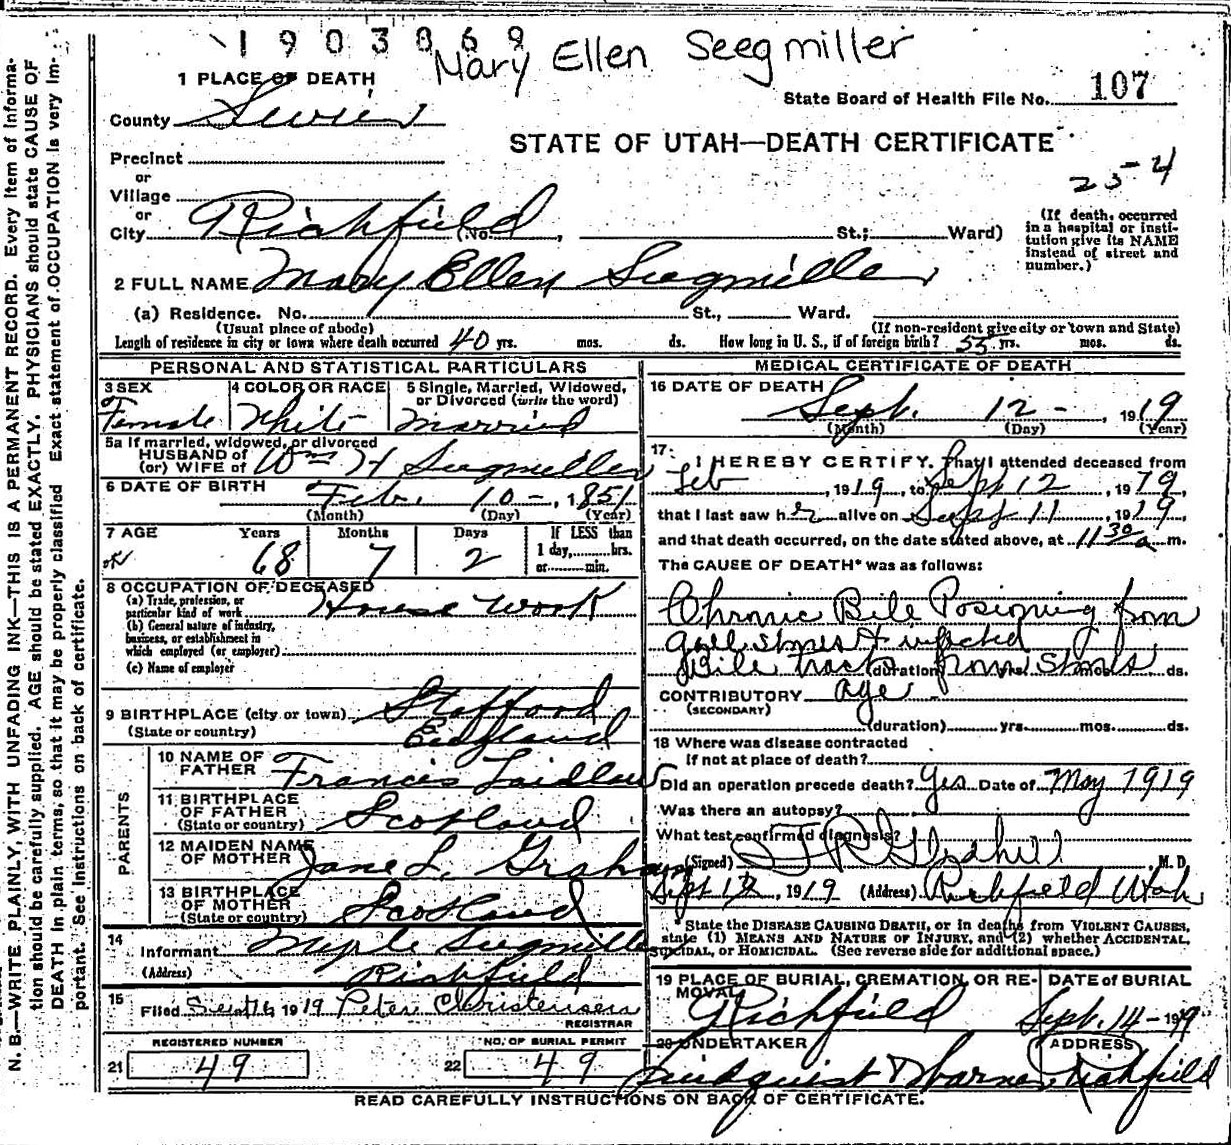 1903869
Mary Ellen Seegmiller
1 PLACE OF DEATH
State Board of Health File No. 107
County Sevier
STATE OF UTAH—DEATH CERTIFICATE
Precinct
or
25-4
Village
or
City Richfield (No. , St.; Ward)
(If death occurred in a hospital or institution give its NAME instead of street and number.)
2 FULL NAME Mary Ellen Seegmiller
(a) Residence. No. St., Ward.
(Usual place of abode) (If non-resident give city or town and State)
Length of residence in city or town where death occurred 40 yrs. mos. ds. How long in U. S., if of foreign birth? 55 yrs. mos. ds.
PERSONAL AND STATISTICAL PARTICULARS
3 SEX Female
4 COLOR OR RACE White
5 Single, Married, Widowed, or Divorced (write the word) Married
5a If married, widowed, or divorced
HUSBAND of
(or) WIFE of Wm H Seegmiller
6 DATE OF BIRTH Feb. 10-, 1851
(Month) (Day) (Year)
7 AGE Years 68 Months 7 Days 2 If LESS than
1 day, hrs.
or min.
8 OCCUPATION OF DECEASED
(a) Trade, profession, or particular kind of work House Work
(b) General nature of industry, business, or establishment in which employed (or employer)
(c) Name of employer
9 BIRTHPLACE (city or town) Stafford
(State or country) England
PARENTS
10 NAME OF FATHER Francis Laidlaw
11 BIRTHPLACE OF FATHER
(State or country) Scotland
12 MAIDEN NAME OF MOTHER Jane L. Graham
13 BIRTHPLACE OF MOTHER
(State or country) Scotland
14 Informant Myrle Seegmiller
(Address) Richfield
15 Filed Sept 16, 1919 Peter Christensen
REGISTRAR
REGISTERED NUMBER
21 49
NO. OF BURIAL PERMIT
22 49
MEDICAL CERTIFICATE OF DEATH
16 DATE OF DEATH
Sept. 12-, 1919
(Month) (Day) (Year)
17 I HEREBY CERTIFY, That I attended deceased from
Feb, 1919, to Sept 12, 1919
that I last saw her alive on Sept 11, 1919,
and that death occurred, on the date stated above, at 11 30 a m.
The CAUSE OF DEATH* was as follows:
Chronic Bile Posioning from
gall stones & infected
Bile tracts (duration) from yrs. stones ds.
CONTRIBUTORY age
(SECONDARY)
(duration) yrs. mos. ds.
18 Where was disease contracted
If not at place of death?
Did an operation precede death? Yes Date of May 1919
Was there an autopsy?
What test confirmed diagnosis?
(Signed) , M. D.
Sept 12, 1919 (Address) Richfield Utah
*State the DISEASE CAUSING DEATH, or in deaths from VIOLENT CAUSES, state (1) MEANS AND NATURE OF INJURY, and (2) whether ACCIDENTAL, SUICIDAL, or HOMICIDAL. (See reverse side for additional space.)
19 PLACE OF BURIAL, CREMATION, OR REMOVAL Richfield
DATE of BURIAL Sept. 14-1919
20 UNDERTAKER
Lindquist & Warner
ADDRESS
Richfield
READ CAREFULLY INSTRUCTIONS ON BACK OF CERTIFICATE.
N. B.—WRITE PLAINLY, WITH UNFADING INK—THIS IS A PERMANENT RECORD. Every item of information should be carefully supplied. AGE should be stated EXACTLY. PHYSICIANS should state CAUSE OF DEATH in plain terms, so that it may be properly classified. Exact statement of OCCUPATION is very important. See instructions on back of certificate.